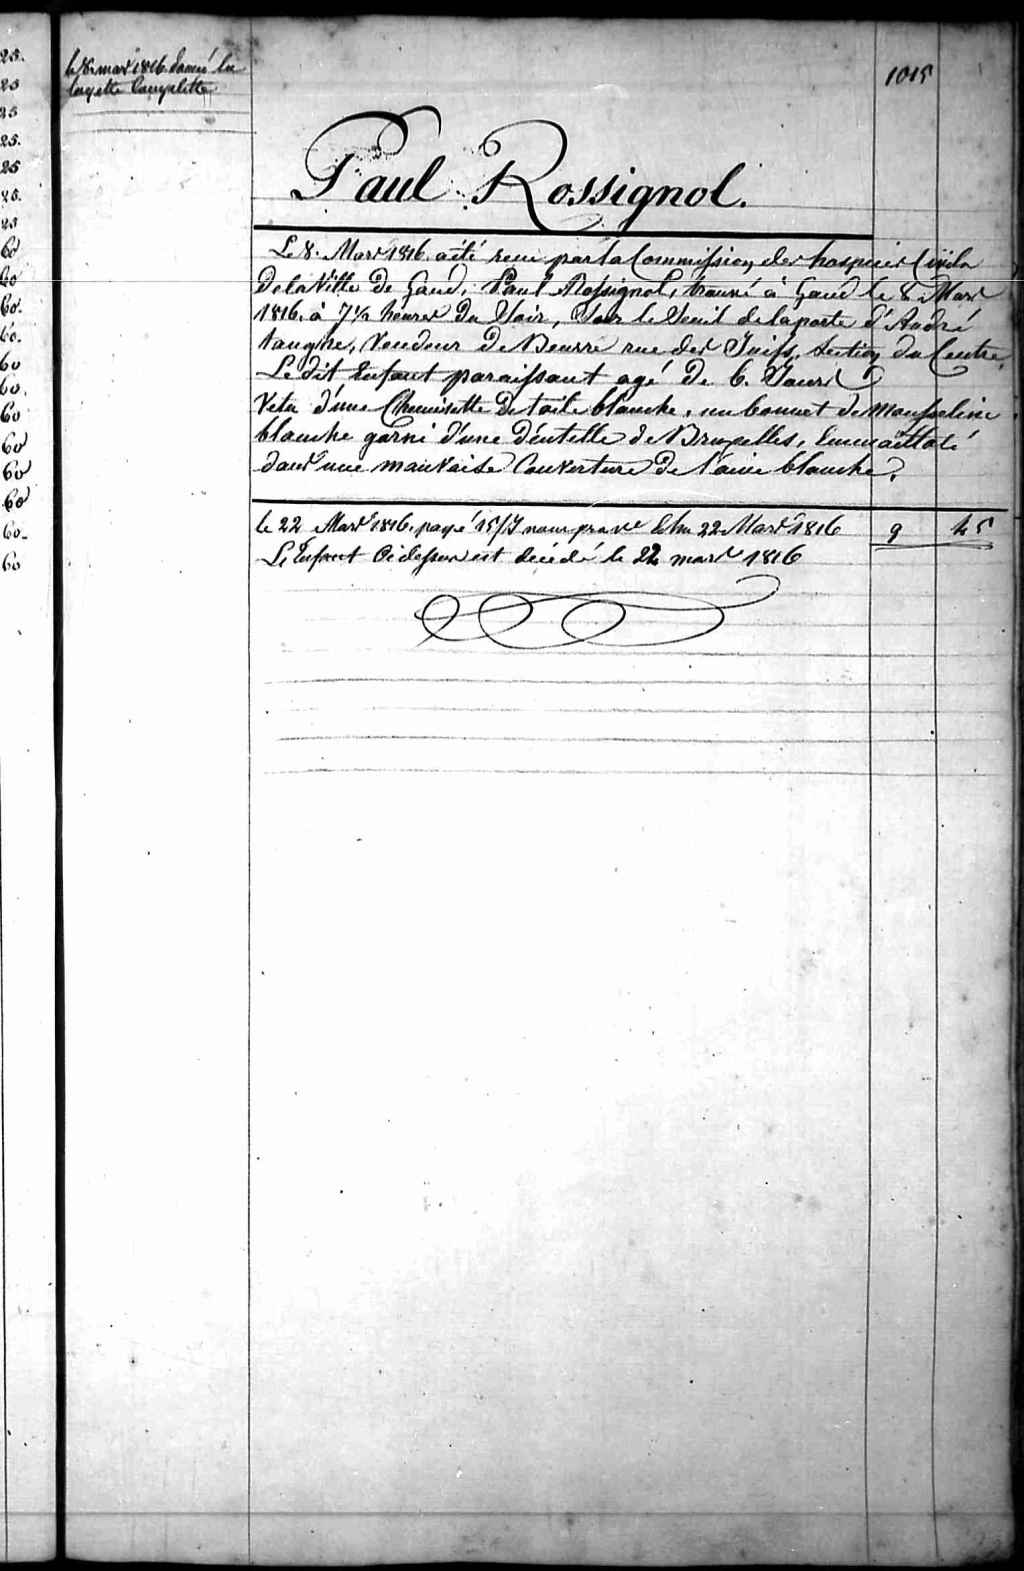 25.
25
25
25.
25
25.
25
60
60
60.
60.
60
60.
60
60
60
60
60.
60
le 8 mars 1816 donné la
layette Complette
1015
Paul Rossignol.
Le 8. Mars 1816. a été reçu par la Commission des hospices Civils
De la Ville de Gand, Paul Rossignol, trouvé à Gand le 8 Mars
1816. à 7 1/2 heures Du Soir, Sur le Seuil de la porte d'André
Vendeur De Beurre rue des Juifs, Section du Centre,
Le dit Enfant paraissant agé De 6. Jours
Vetu d'une Chemisette De toile blanche, un bonnet de Mousseline
blanche garni d'une Déntelle de Bruxelles, Emmaillolé
dans une mauvaise Couverture De laine blanche.
le 22 Mars 1816. payé 15/J 22 Mars 1816 9 45
L'Enfant Ci dessus est décédé le 22 mars 1816